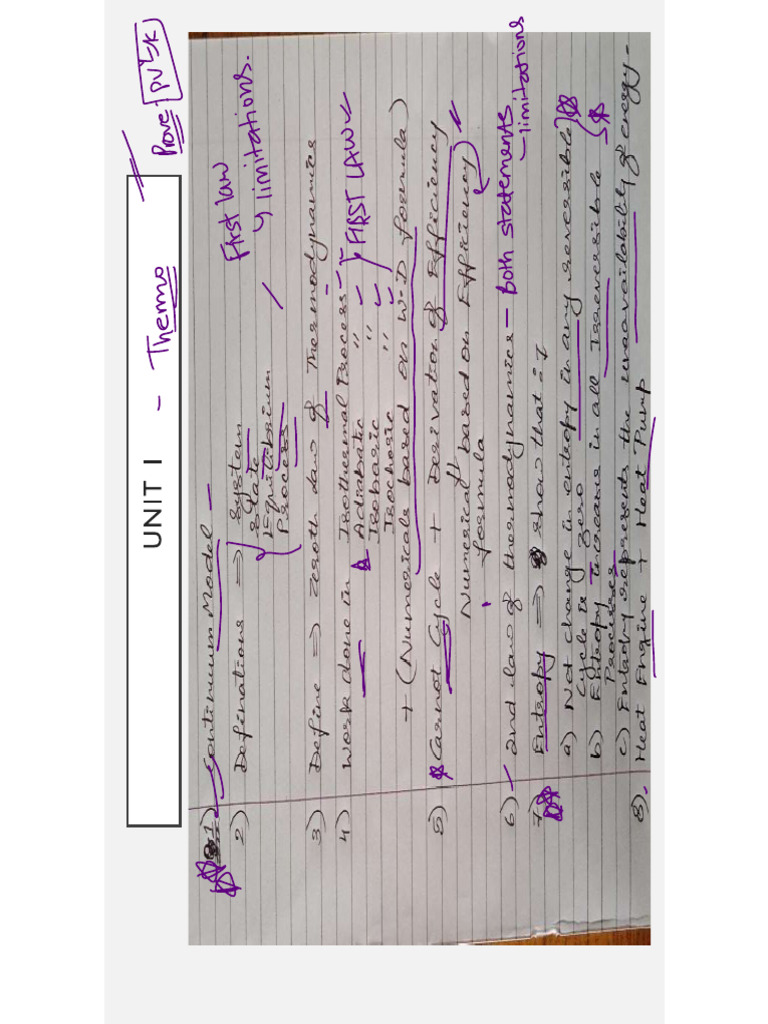 UNIT I - Thermo
Prove: PVˠ=K
1) Continuum Model -
2) Definations ⇒ System
State
Equilibrium
Process
First law
↳ limitations.
3) Define ⇒ Zeroth law of Thermodynamics
4) Work done in Isothermal Process
Adiabatic "
Isobaric "
Isochoric "
FIRST LAW
+ (Numericals based on W.D formula)
5) Carnot Cycle + Derivation of Efficiency
Numerical based on Efficiency
formula
6) 2nd law of thermodynamics - Both statements
- limitations
7) Entropy ⇒ show that :-
a) Net change in entropy in any reversible
Cycle is zero
b) Entropy Increase in all Irreversible
Processes
c) Entropy represents the unavailability of energy -
8) Heat Engine + Heat Pump